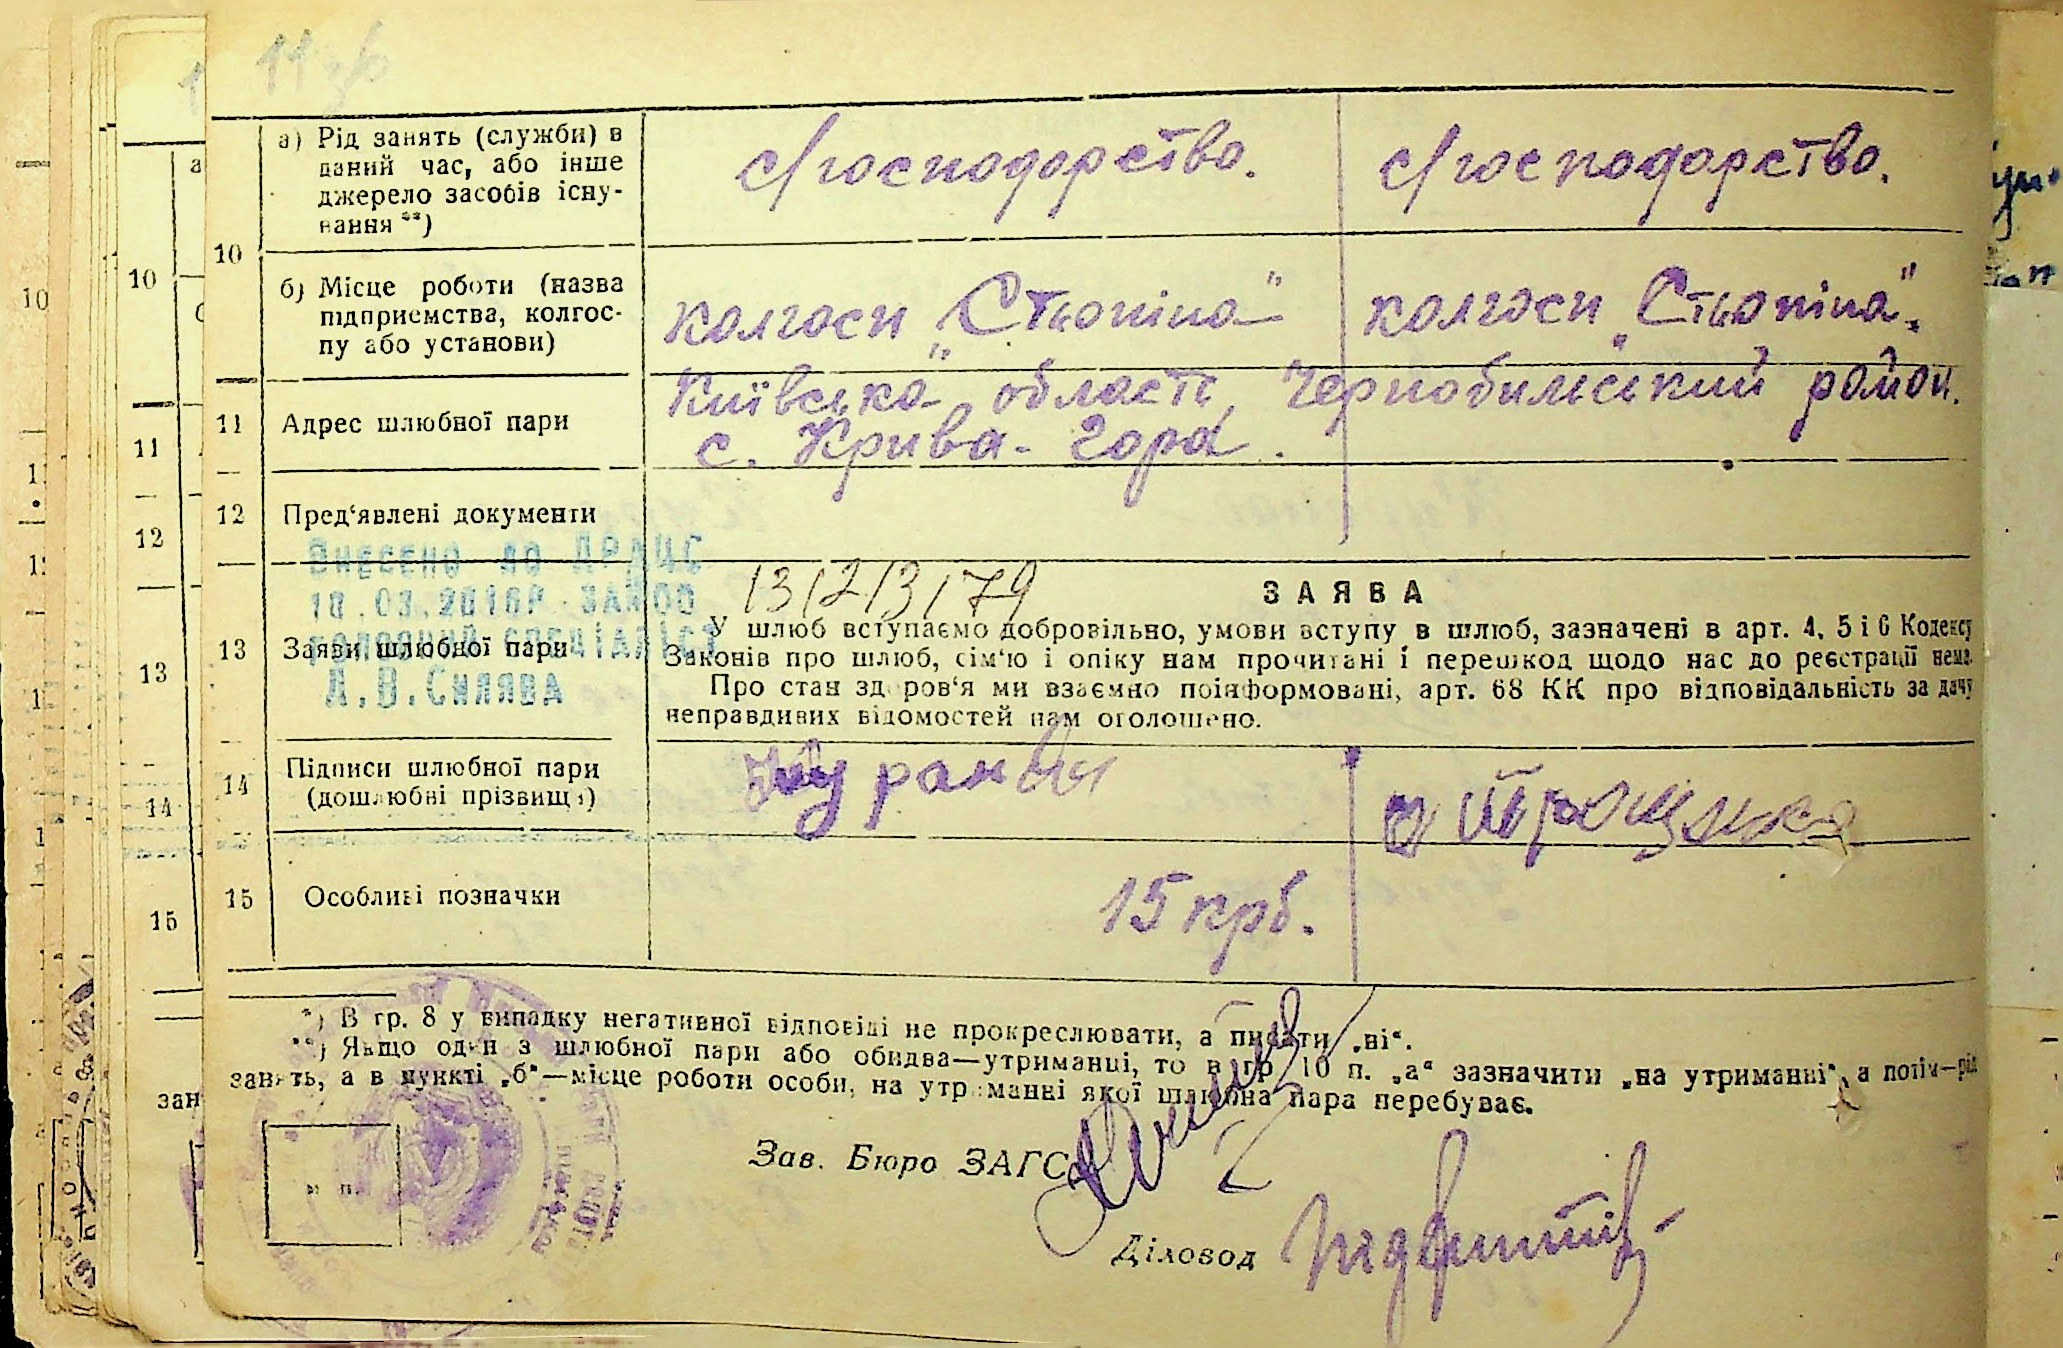 11 зв
а) Рід занять (служби) в
даний час, або інше
джерело засобів існу-
вання **)
с/господарство.
с/господарство.
10
б) Місце роботи (назва
підприємства, колгос-
пу або установи)
колгосп „Сталіна"
колгосп „Сталіна".
11
Адрес шлюбної пари
Київська область, Чернобильський район.
с. Крива-Гора.
12
Пред'явлені документи
ВНЕСЕНО ДО ДРАЦС
ГОЛОВНИЙ СПЕЦІАЛІСТ
13/2/3/79
ЗАЯВА
13
Заяви шлюбної пари
У шлюб вступаємо добровільно, умови вступу в шлюб, зазначені в арт. 4, 5 і 6 Кодексу
Законів про шлюб, сім'ю і опіку нам прочитані і перешкод щодо нас до реєстрації нема.
Про стан здоров'я ми взаємно поінформовані, арт. 68 КК про відповідальність за дачу
неправдивих відомостей нам оголошено.
14
Підписи шлюбної пари
(дошлюбні прізвища)
15
Особливі позначки
15 крб.
*) В гр. 8 у випадку негативної відповіді не прокреслювати, а писати „ні“.
**) Якщо один з шлюбної пари або обидва—утриманці, то в гр. 10 п. „а“ зазначити „на утриманні“, а потім—рід
занять, а в пункті „б“—місце роботи особи, на утриманні якої шлюбна пара перебуває.
м. п.
Зав. Бюро ЗАГС
Діловод
10
11
12
13
14
15
зан